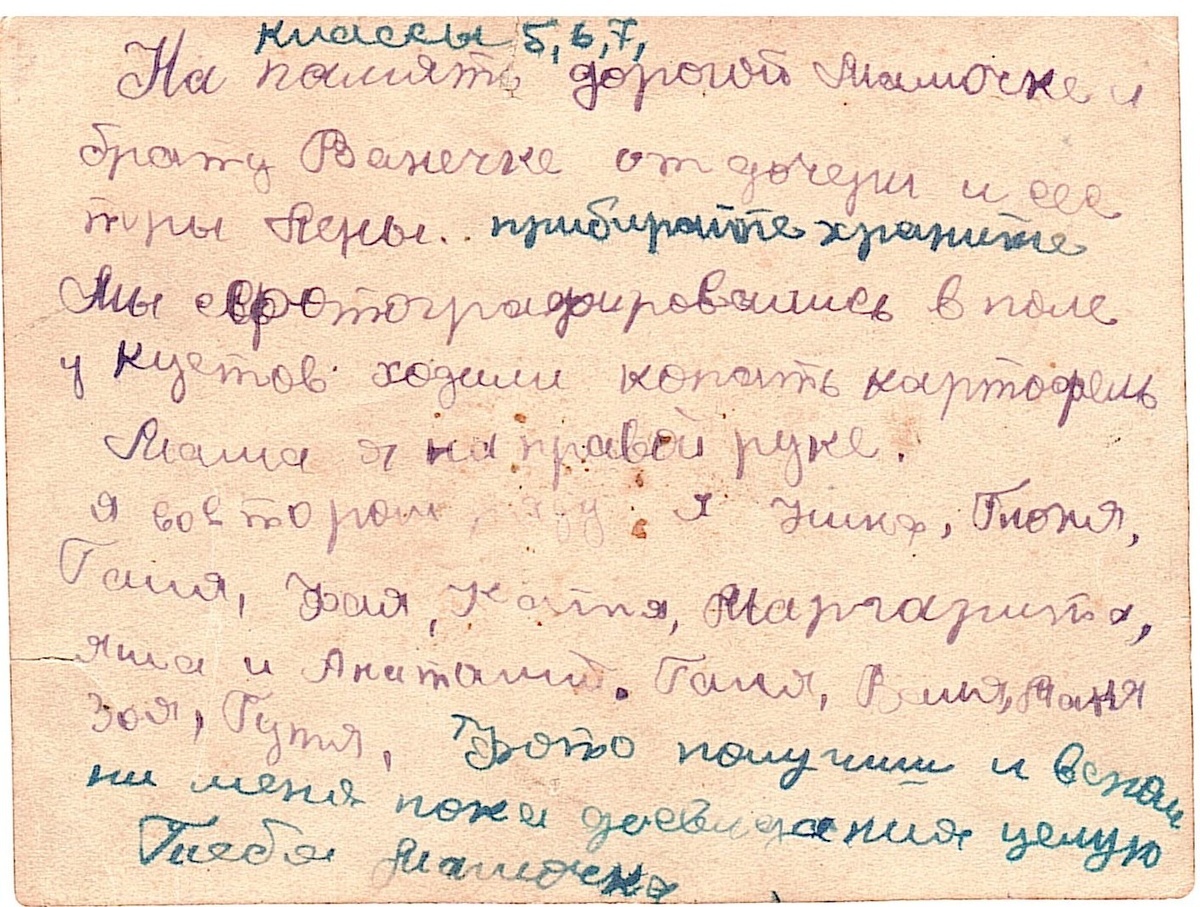 классы 5,6,7,
На память дорогой Мамочке и
брату Ванечке от дочери и сес
тры Лены.. прибирайте храните
Мы сфотографировались в поле
у кустов ходили копать картофель
Мама я на правой руке.
я вовтором ряду я Нина, Тоня,
Галя, Рая, Катя, Маргарита,
яша и Анатолий. Галя, Валя, Маня
Зоя, Гутя, Фото получиш и вспом
ни меня пока досвидания целую
Тебя Мамочка